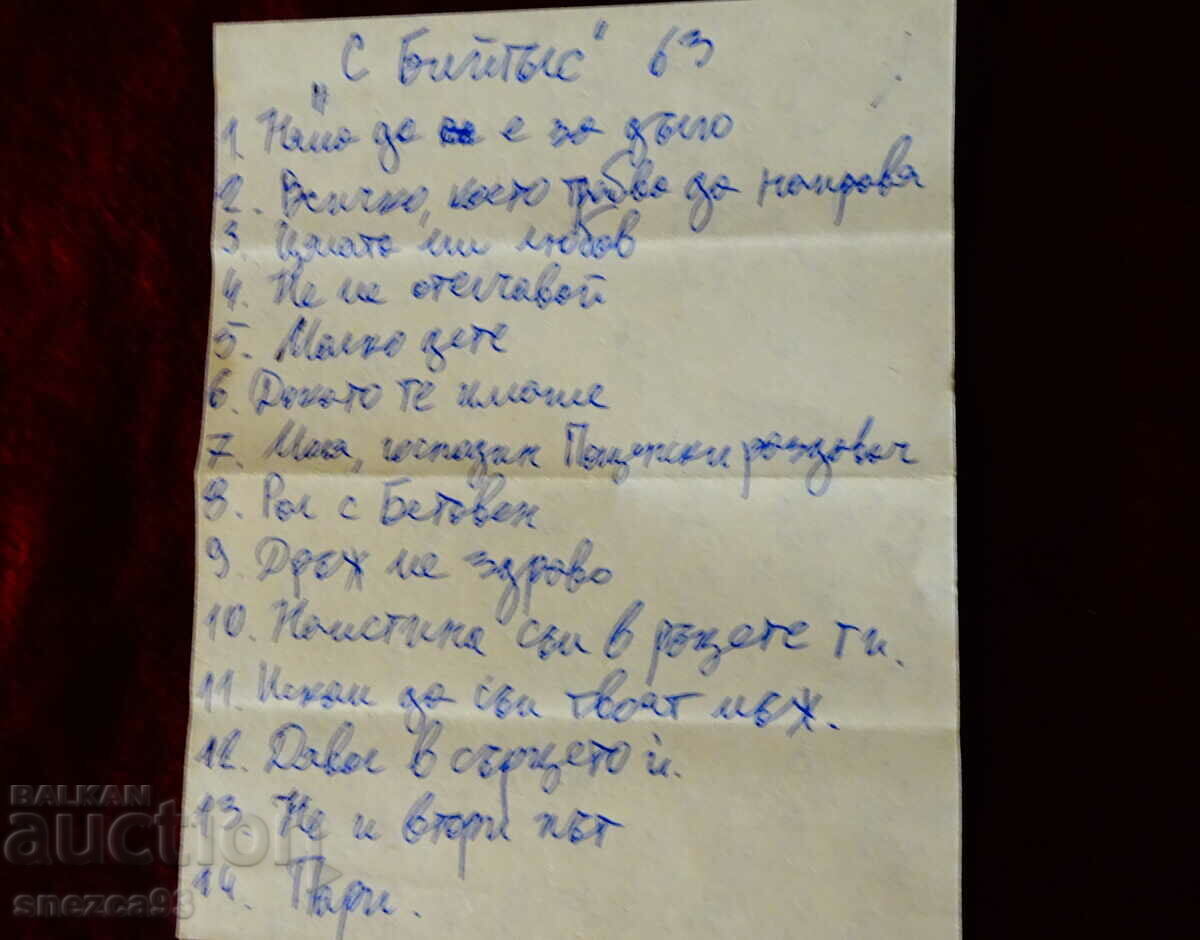 "С Бийтълс" 63
1. Няма да е за дълго
2. Всичко, което трябва да направя
3. Цялата ми любов
4. Не ме отегчавай
5. Малко дете
6. Докато те имаше
7. Моля, господин Пощенски раздавач
8. Рол с Бетовен
9. Дръж ме здраво
10. Наистина съм в ръцете ти.
11. Искам да съм твоят мъж.
12. Давол в сърцето ѝ.
13. Не и втори път
14. Пари.
BALKAN
auction
snezca93